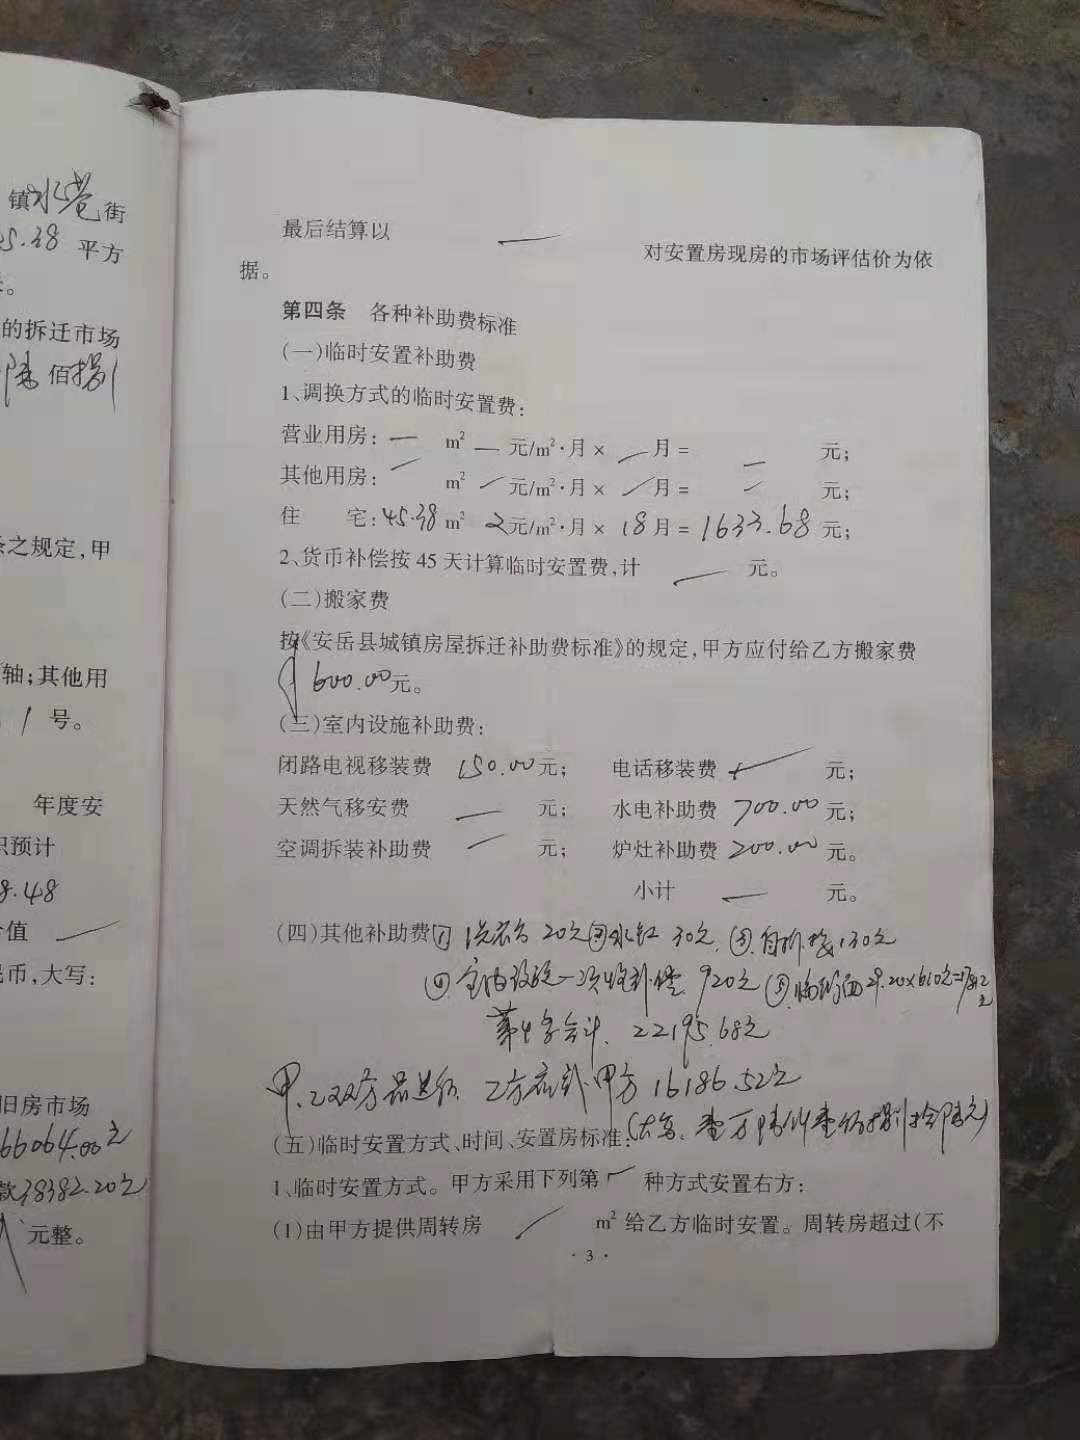 镇水巷街
5.38 平方
的拆迁市场
陆佰捌
条之规定,甲
轴;其他用
1 号。
年度安
积预计
8.48
价值 —
民币,大写:
旧房市场
66064.00元
款38382.20元
元整。
最后结算以 — 对安置房现房的市场评估价为依
据。
第四条 各种补助费标准
(一)临时安置补助费
1、调换方式的临时安置费:
营业用房: — m² — 元/m²·月× — 月= — 元;
其他用房: — m² — 元/m²·月× — 月= — 元;
住 宅:45.38 m² 2元/m²·月× 18月=1633.68元;
2、货币补偿按 45 天计算临时安置费,计 — 元。
(二)搬家费
按《安岳县城镇房屋拆迁补助费标准》的规定,甲方应付给乙方搬家费
600.00元。
(三)室内设施补助费:
闭路电视移装费 150.00元; 电话移装费 — 元;
天然气移安费 — 元; 水电补助费 700.00元;
空调拆装补助费 — 元; 炉灶补助费 200.00元。
小计 — 元。
(四)其他补助费① 洗衣台 20元②水缸 30元.③.自拆找130元
④.室内设施一次性补偿 920元⑤.临街面29.20×610元=17812元
第4条合计. 22195.68元
甲.乙双方品迭后 乙方应找甲方 16186.52元
(五)临时安置方式、时间、安置房标准:(大写:壹万陆仟壹佰捌拾陆元)
1、临时安置方式。甲方采用下列第 — 种方式安置右方:
(1)由甲方提供周转房 — m² 给乙方临时安置。周转房超过(不
·3·